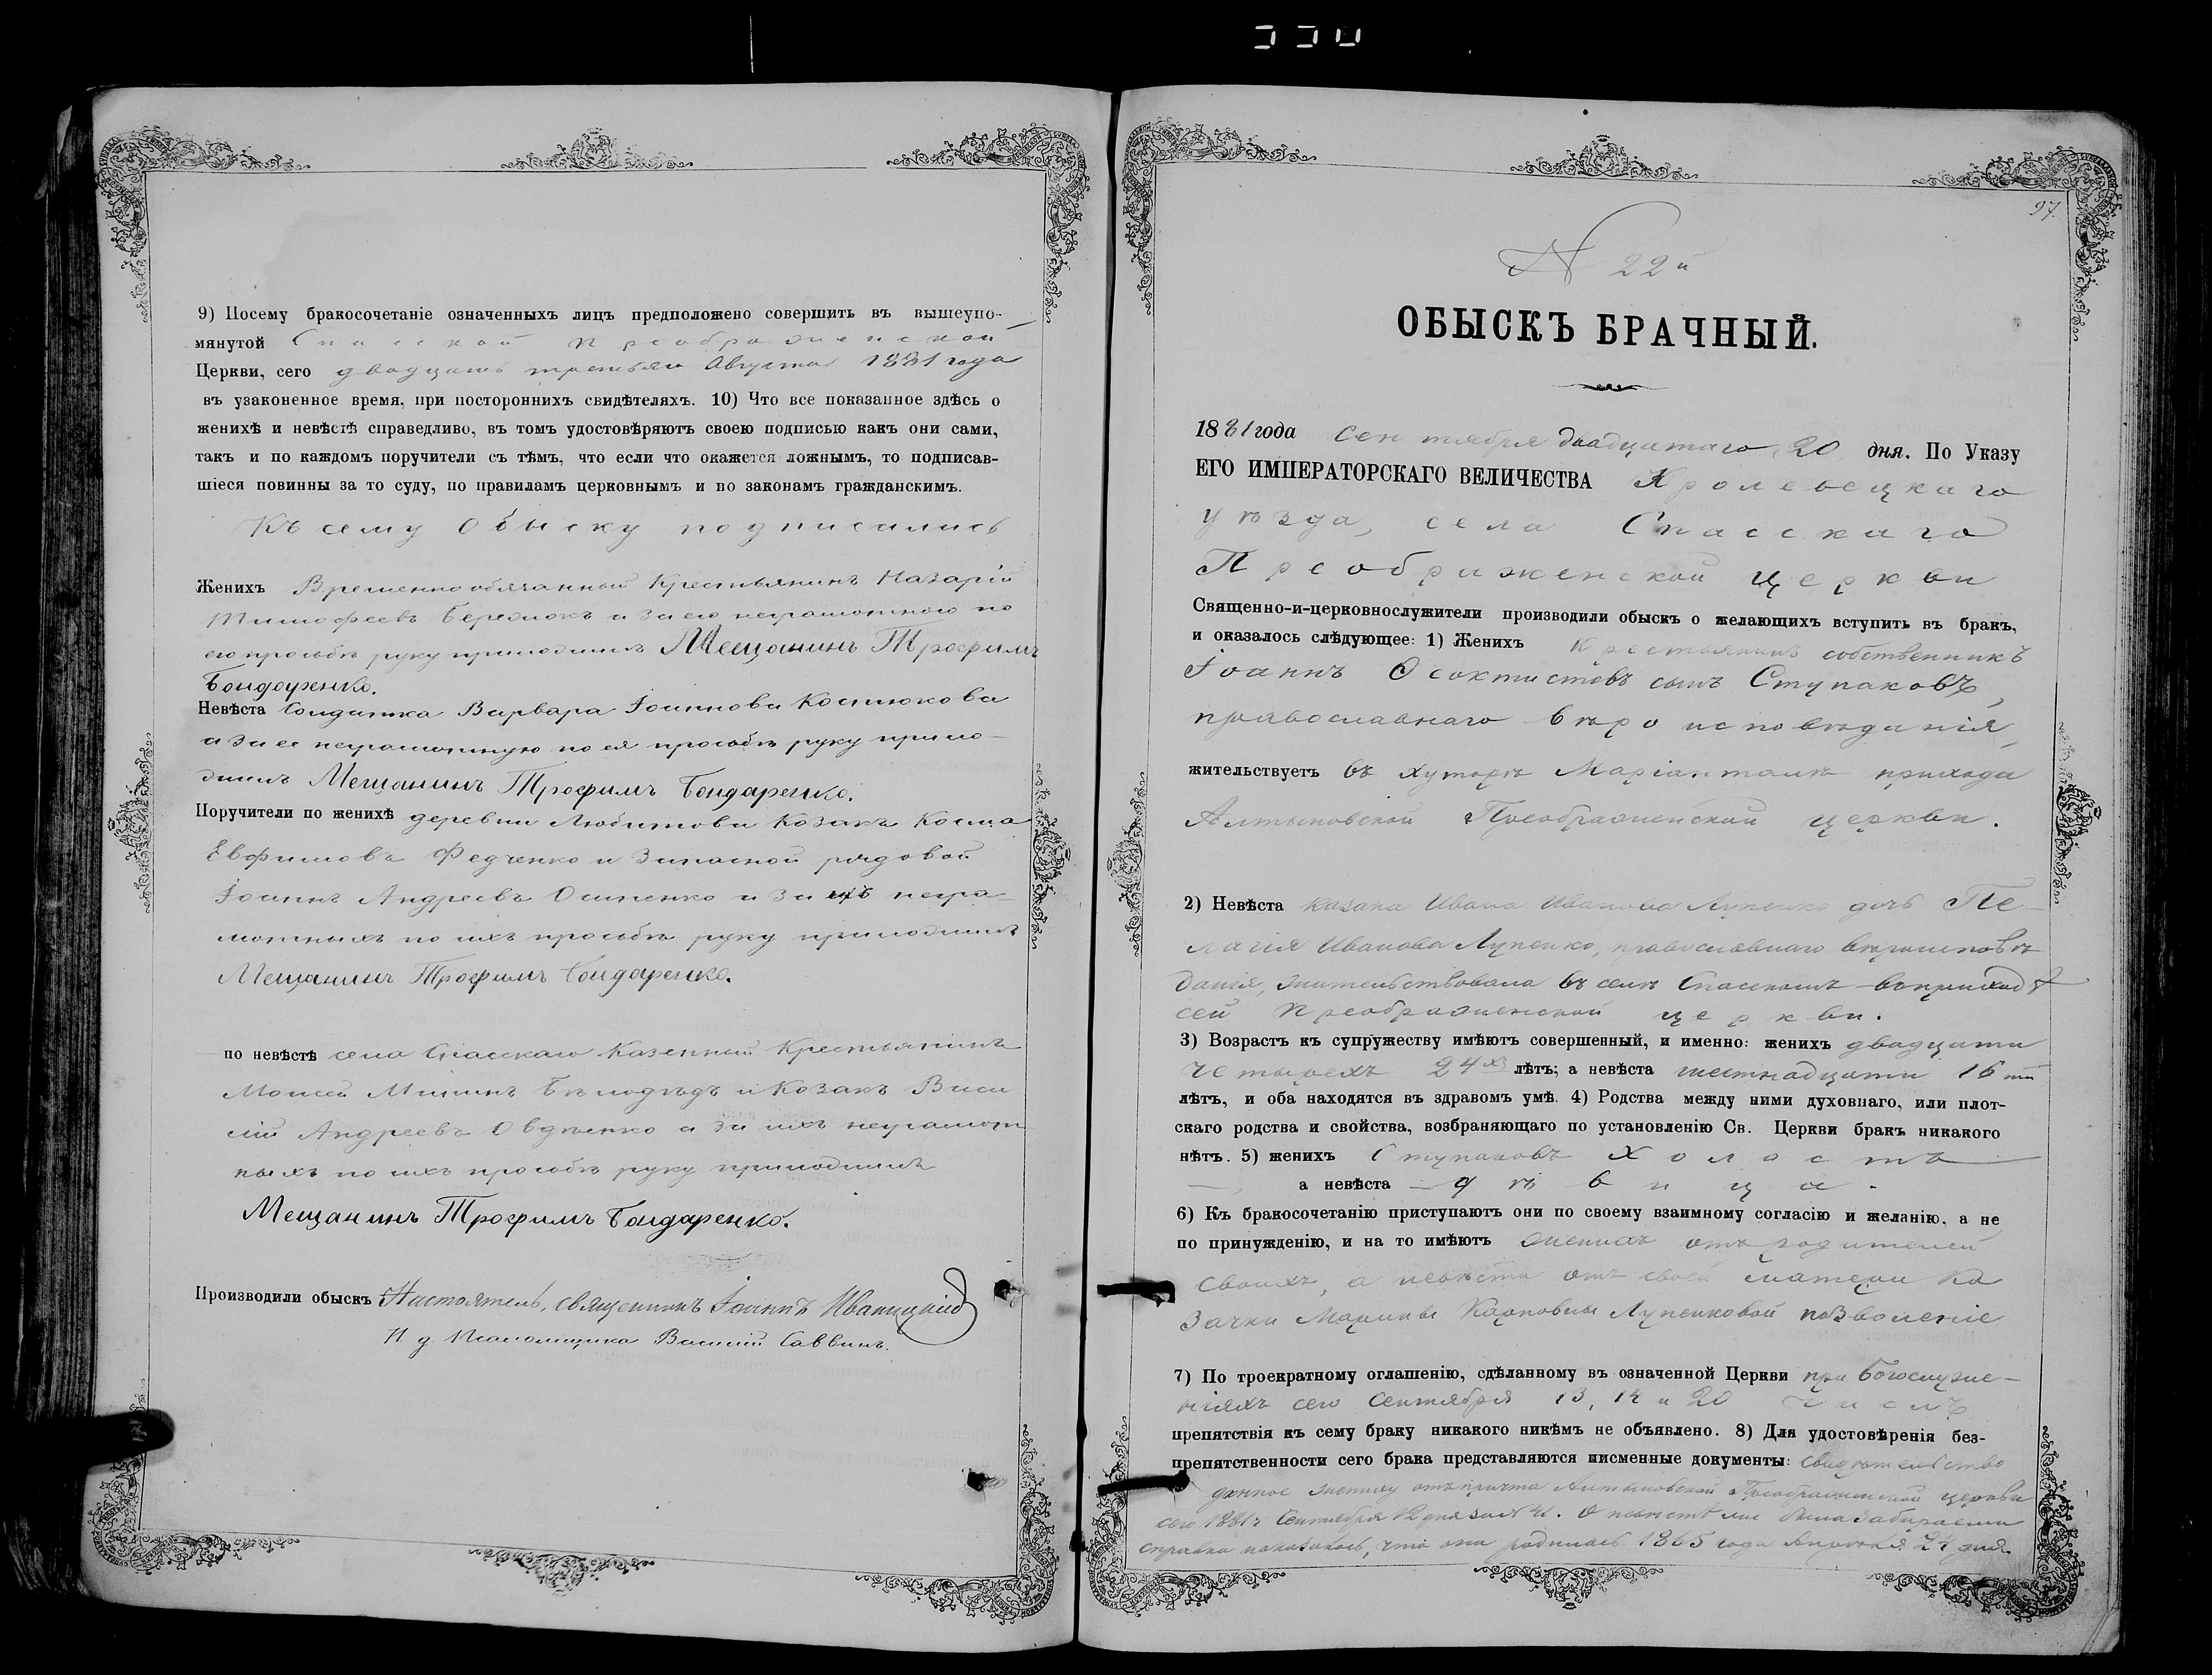 9) Посему бракосочетаніе означенныхъ лицъ предположено совершить въ вышеупо-
мянутой Спасской Преображенской
Церкви, сего двадцать третьяго Августа 1881 года
въ узаконенное время, при постороннихъ свидѣтеляхъ. 10) Что все показанное здѣсь о
женихѣ и невѣстѣ справедливо, въ томъ удостовѣряютъ своею подписью какъ они сами,
такъ и по каждомъ поручители съ тѣмъ, что если что окажется ложнымъ, то подписав-
шіеся повинны за то суду, по правиламъ церковнымъ и по законамъ гражданскимъ.
Къ сему обыску подписались
Женихъ Временнообязанный Крестьянинъ Назарій
Тимофеевъ а за его неграмотного по
его просьбѣ руку приложилъ Мещанинъ Трофимъ
Бондаренко.
Невѣста Солдатка Варвара Іоаннова Костюкова
а за ее неграмотную по ея просьбѣ руку прило-
жилъ Мещанинъ Трофимъ Бондаренко.
Поручители по женихѣ деревни Любитова Козакъ Косма
Евфимовъ Федченко и Запасной рядовой
Іоаннъ Андреевъ Осипенко а за ихъ негра-
мотныхъ по ихъ просьбѣ руку приложилъ
Мещанинъ Трофимъ Бондаренко.
по невѣстѣ села Спасскаго Казенный Крестьянинъ
Моисей Мининъ Бѣлодѣдъ и Козакъ Васи
лій Андреевъ Овдѣенко а за ихъ неграмот
ныхъ по ихъ просьбѣ руку приложилъ
Мещанинъ Трофимъ Бондаренко.
Производили обыскъ Настоятель, священникъ Іоаннъ Иваницкій
И д Псаломщика Василій Саввинъ.
97.
N 22й
ОБЫСКЪ БРАЧНЫЙ.
1881 года Сентября двадцатаго, 20 дня. По Указу
ЕГО ИМПЕРАТОРСКАГО ВЕЛИЧЕСТВА Кролевецкаго
уѣзда, села Спасскаго
Преображенской церкви
Священно-и-церковнослужители производили обыскъ о желающихъ вступить въ бракъ,
и оказалось слѣдующее: 1) Женихъ Крестьянинъ собственникъ
Іоаннъ Ѳеоктистовъ сынъ Ступаковъ,
православнаго вѣроисповѣданія,
жительствуетъ въ хуторѣ Маріанталѣ прихода
Алтыновской Преображенской церкви.
2) Невѣста казака Ивана Иванова Лупенка дочь Пе-
лагія Иванова Лупенко, православнаго вѣроисповѣ
данія, жительствовала въ селѣ Спасскомъ въ приходѣ
сей Преображенской церкви.
3) Возрастъ къ супружеству имѣютъ совершенный, и именно: женихъ двадцати
четырехъ 24хъ лѣтъ; а невѣста шестнадцати 16ти
лѣтъ, и оба находятся въ здравомъ умѣ. 4) Родства между ними духовнаго, или плот-
скаго родства и свойства, возбраняющаго по установленію Св. Церкви бракъ никакого
нѣтъ. 5) женихъ Ступаковъ холостъ
а невѣста дѣвица.
6) Къ бракосочетанію приступаютъ они по своему взаимному согласію и желанію, а не
по принужденію, и на то имѣютъ женихъ отъ родителей
своихъ, а невѣста отъ своей матери ка
зачки Марины Карповны Лупенковой позволеніе
7) По троекратному оглашенію, сдѣланному въ означенной Церкви при богослуже-
ніяхъ сего Сентября 13, 14 и 20 чиселъ
препятствія къ сему браку никакого никѣмъ не объявлено. 8) Для удостовѣренія без-
препятственности сего брака представляются писменные документы: свидѣтельство
данное жениху отъ причта Алтыновской Преображенской церкви
сего 1881 г Сентября 12 дня за N. О невѣстѣ была забираема
справка показалось, что она родилась 1865 года Апрѣля 24 дня.